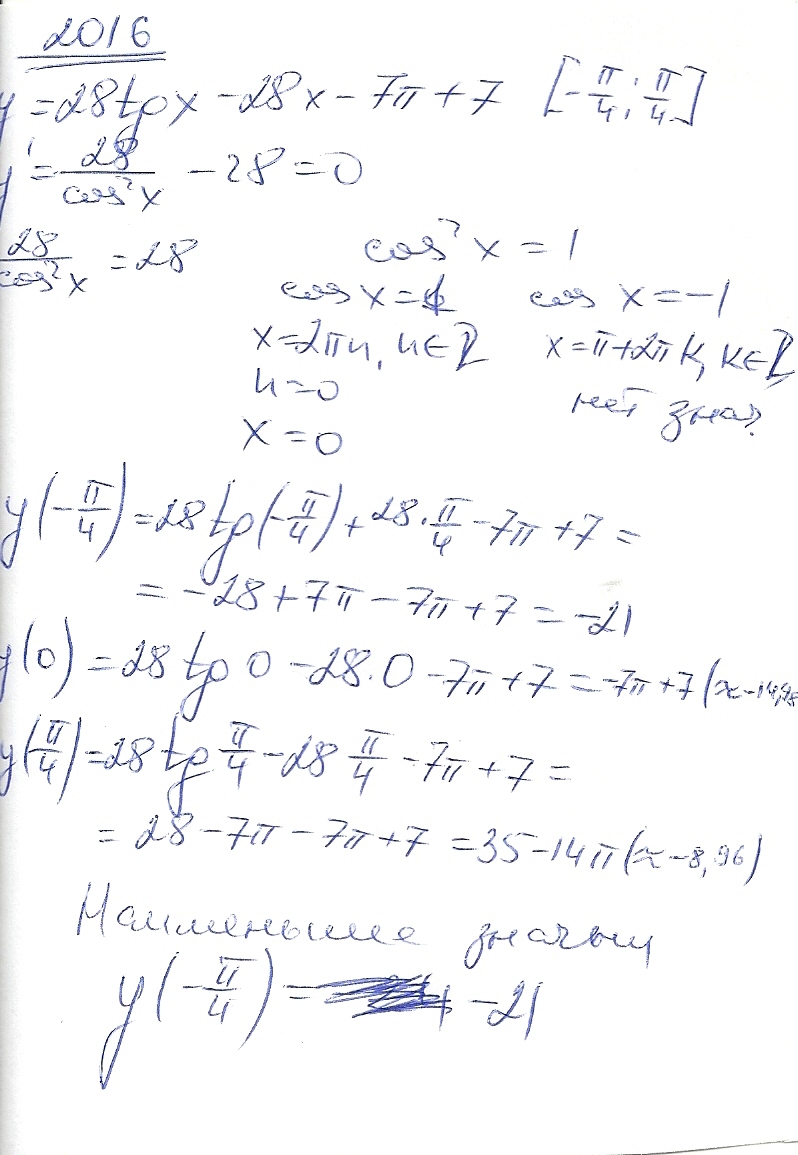 2016
y = 28 tg x - 28x - 7π + 7 [-π/4; π/4]
y' = 28/cos²x - 28 = 0
28/cos²x = 28 cos²x = 1
cos x = 1 cos x = -1
x = 2πn, n∈Z x = π + 2πk, k∈Z
n = 0 нет знач.
x = 0
y(-π/4) = 28 tg(-π/4) + 28 · π/4 - 7π + 7 =
= -28 + 7π - 7π + 7 = -21
y(0) = 28 tg 0 - 28 · 0 - 7π + 7 = -7π + 7 (≈ -14,98
y(π/4) = 28 tg π/4 - 28 π/4 - 7π + 7 =
= 28 - 7π - 7π + 7 = 35 - 14π (≈ -8,96)
Наименьшее
y(-π/4) = -21